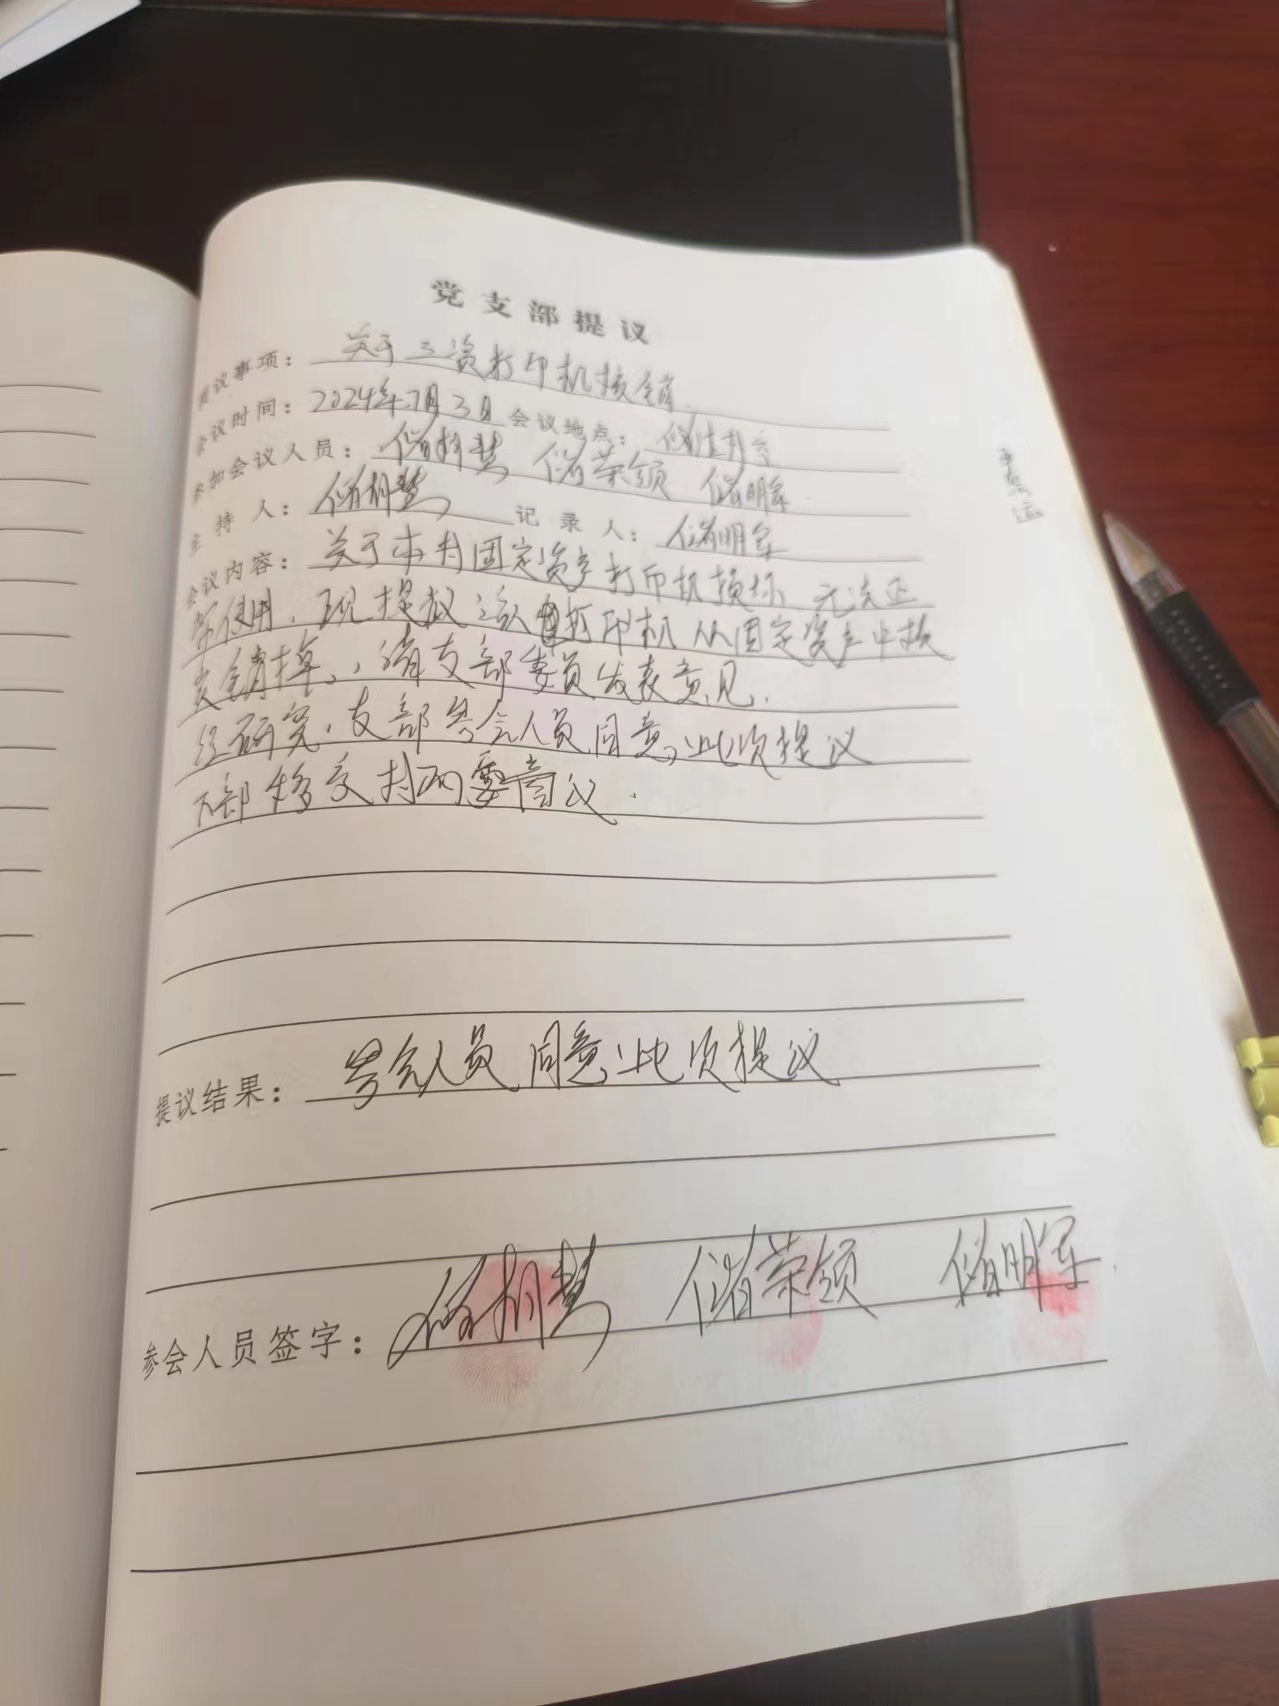 党支部提议
提议事项：关于三资打印机核销
会议时间：2024年7月3日 会议地点：储
参加会议人员：储胡慧 储荣领 储明军
主持人：储胡慧 记录人：储明军
会议内容：关于本村固定资产打印机损坏 无法正
常使用，现提议该打印机从固定资产中核
销掉，请支部委员发表意见.
经研究，支部参会人员同意此次提议
下部移交村两委商议.
提议结果：参会人员同意此次提议
参会人员签字：储胡慧 储荣领 储明军